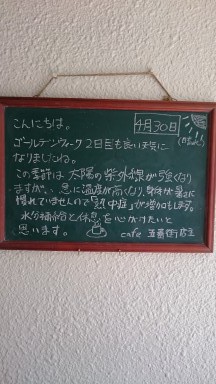 こんにちは。
4月30日
ゴールデンウィーク2日目も良い天気に
なりましたね。
この季節は太陽の紫外線が強くなり
ますが、急に温度が高くなり、身体は暑さに
慣れていませんので「熱中症」が増加します。
水分補給と休息を心がけたいと
思います。
cafe 五番街店主